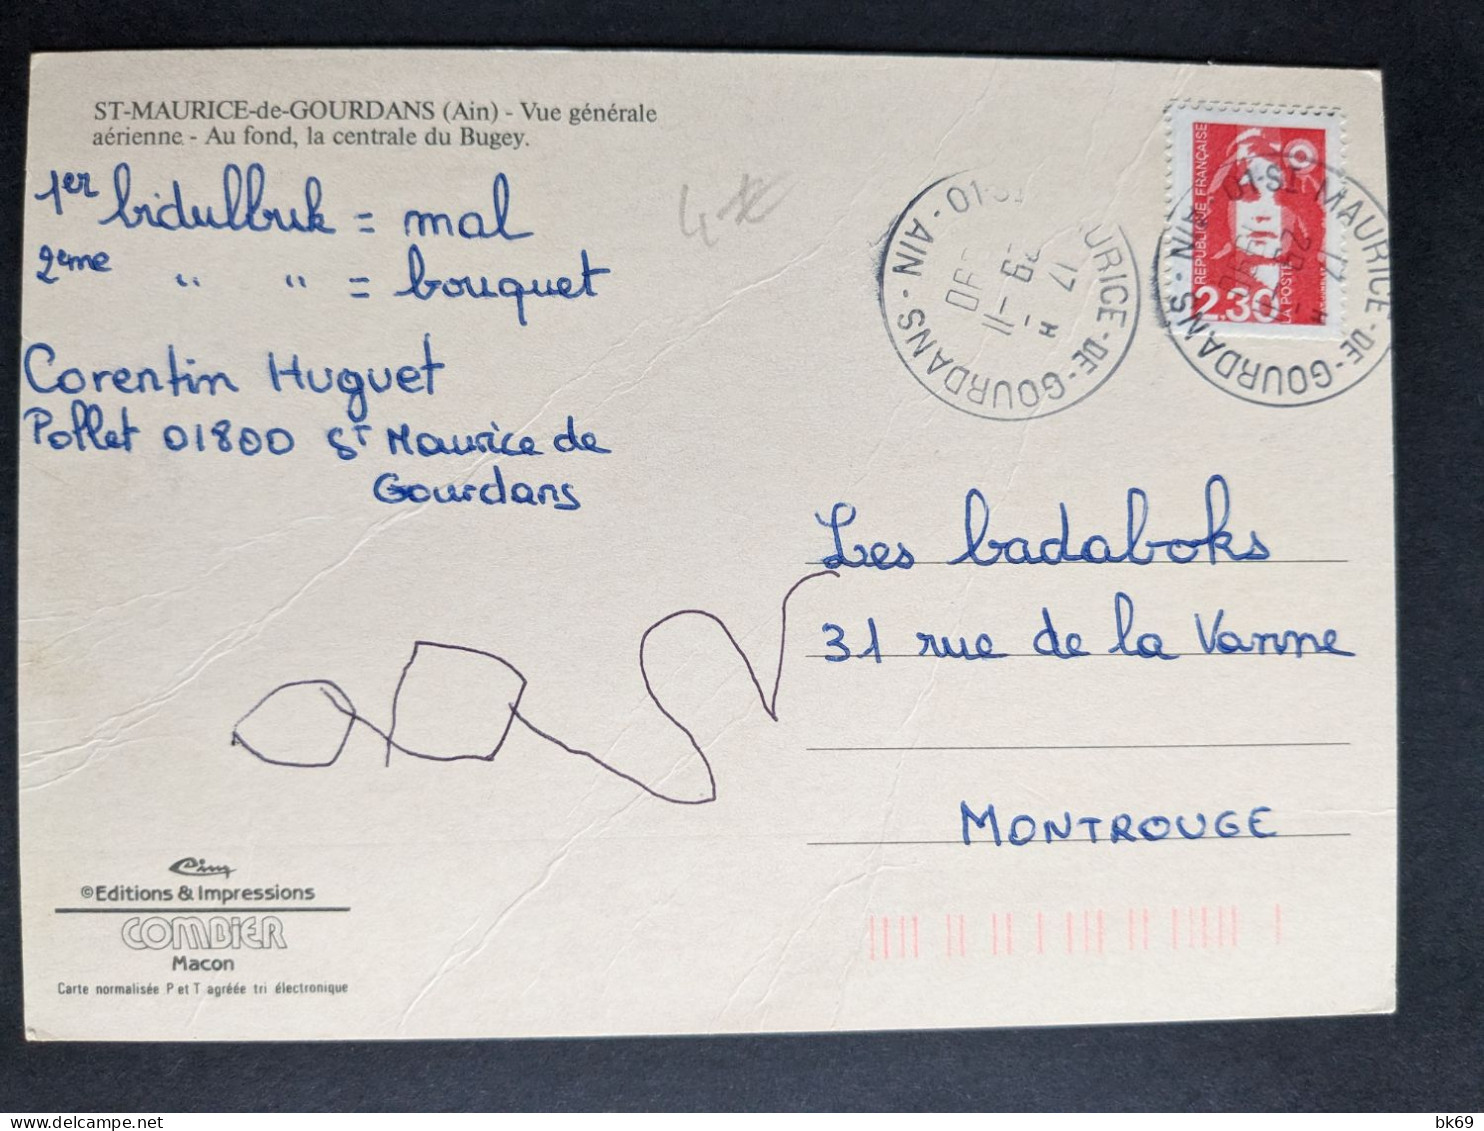 ST-MAURICE-de-GOURDANS (Ain) - Vue générale
aérienne - Au fond, la centrale du Bugey.
1er bidulbuk = mal
2eme " " = bouquet
Corentin Huguet
Pollet 01800 St Maurice de
Gourdans
RÉPUBLIQUE FRANÇAISE
2.30
LA POSTE
01-ST MAURICE-DE-GOURDANS - AIN
17 H
29-11
90
Les badaboks
31 rue de la Vanne
MONTROUGE
Cim
©Editions & Impressions
COMBIER
Macon
Carte normalisée P et T agréée tri électronique
bk69